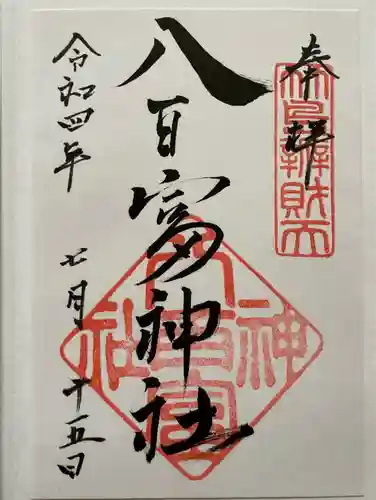 奉拝
八百富神社
令和四年 七月 十五日
八百富神社